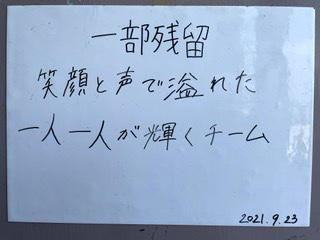 一部残留
笑顔と声で溢れた
一人一人が輝くチーム
2021.9.23